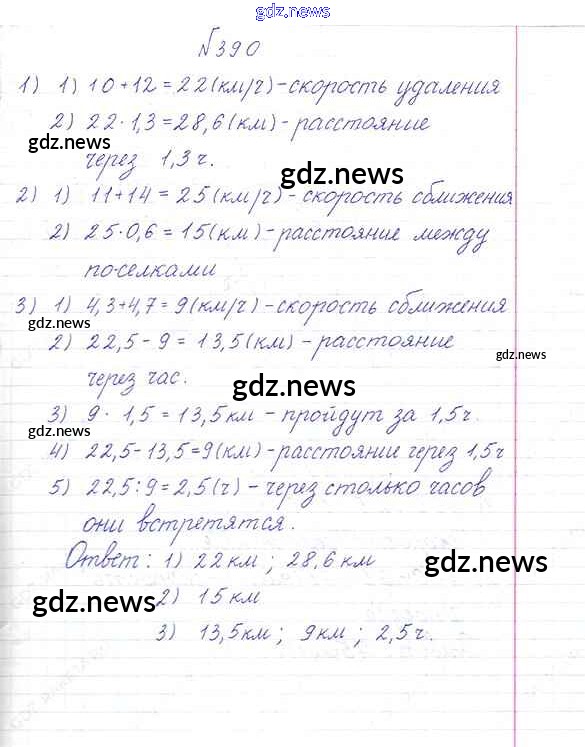 gdz.news
№390
1) 1) 10+12=22(км/ч)-скорость удаления
2) 22·1,3=28,6(км)-расстояние
gdz.news
через 1,3ч.
gdz.news
2) 1) 11+14=25(км/ч)-скорость сближения
2) 25·0,6=15(км)-расстояние между
поселками
3) 1) 4,3+4,7=9(км/ч)-скорость сближения
gdz.news
2) 22,5-9=13,5(км)-расстояние
gdz.news
через час.
gdz.news
3) 9·1,5=13,5км-пройдут за 1,5ч.
gdz.news
4) 22,5-13,5=9(км)-расстоянии через 1,5ч
5) 22,5:9=2,5(ч)-через столько часов
они встретятся.
Ответ: 1) 22км; 28,6км
gdz.news
gdz.news
2) 15км
3) 13,5км; 9км; 2,5ч.